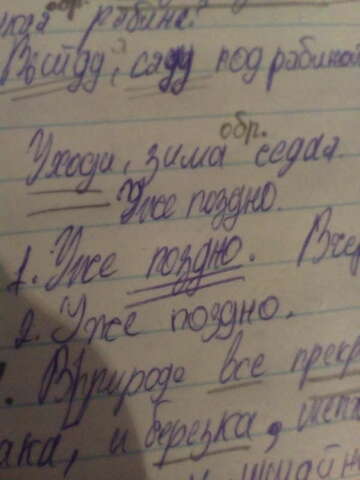 обр.
рябина.
Выйду, сяду под рябиной
обр.
Уходи, зима седая.
Уже поздно.
1. Уже поздно. Вчер
2. Уже поздно.
Вприроде все прекр
ака, и березка,